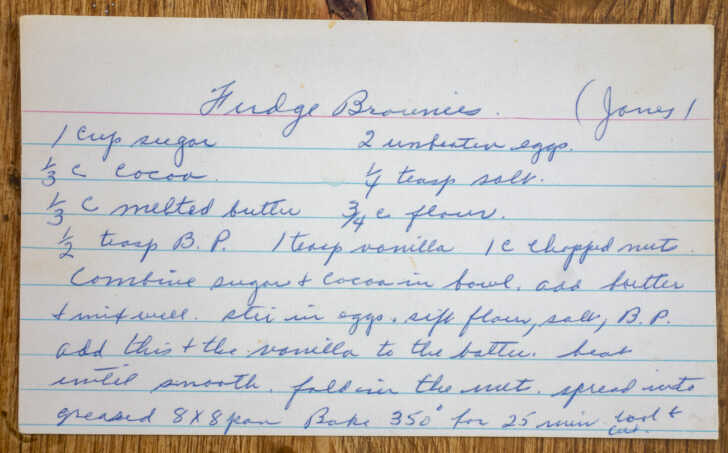 Fudge Brownies. (Jones)
1 cup sugar 2 unbeaten eggs.
1/3 c cocoa. 1/4 teasp salt.
1/3 c melted butter 3/4 c flour.
1/2 teasp B.P. 1 teasp vanilla 1 c chopped nuts.
Combine sugar & cocoa in bowl. add butter
& mix well. stir in eggs. sift flour, salt, B.P.
add this & the vanilla to the batter. beat
until smooth. fold in the nut. spread into
greased 8x8 pan Bake 350° for 25 min. cool &
cut.